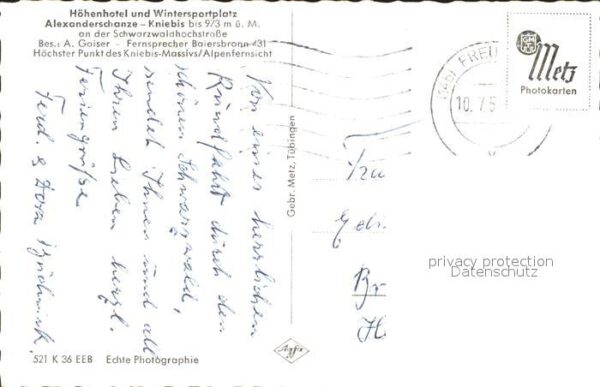 Höhenhotel und Wintersportplatz
Alexanderschanze - Kniebis bis 9/3 m ü. M.
an der Schwarzwaldhochstraße
Bes.: A. Gaiser - Fernsprecher Baiersbronn 431
Höchster Punkt des Kniebis-Massivs/Alpenfernsicht
Von einer herrlichen
Rundfahrt durch den
schönen Schwarzwald,
sendet Ihnen und all
Ihren Lieben herzl.
Feriengrüße
Ferd. & Dora
521 K 36 EEB Echte Photographie
Gebr. Metz, Tübingen
Agfa
FREI
10. 7. 5
Metz
Photokarten
Br
privacy protection
Datenschutz